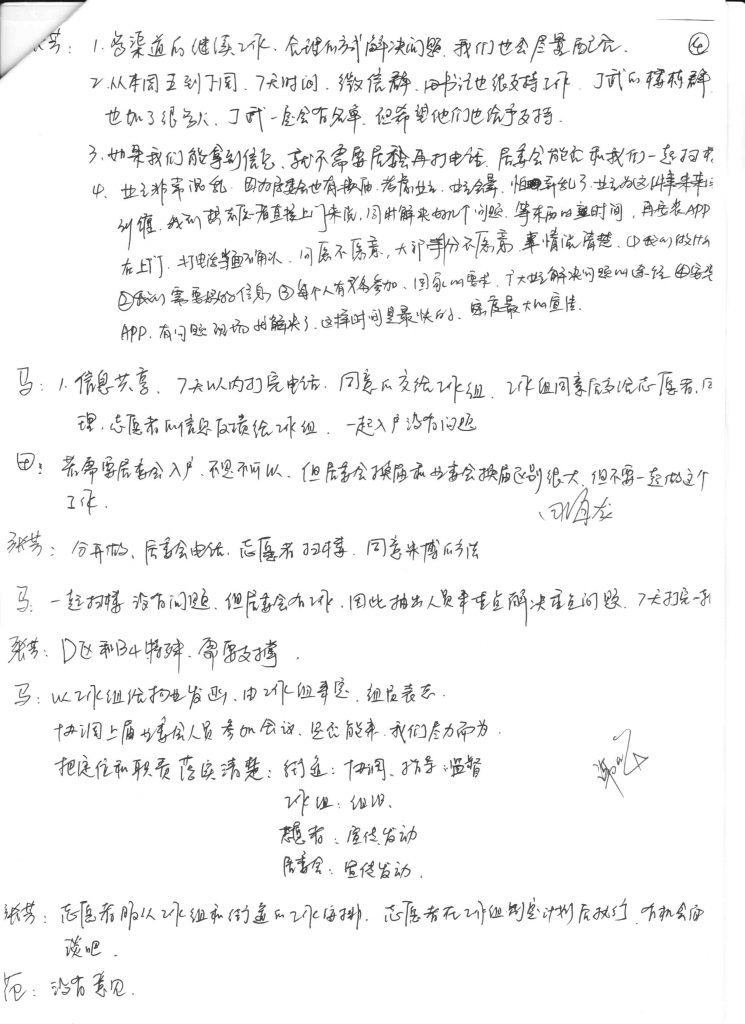 ④
张芳：1.各渠道的继续工作，合理的方式解决问题，我们也会尽量配合.
2.从本周五到下周，7天时间，微信群，田书记也很支持工作，丁武的楼栋群
也加了很多人，丁武一定会有名单，但希望他们也给予支持.
3.如果我们能拿到信息，就不需要居委会再打电话，居委会能否和我们一起扫楼
4.业主非常混乱，因为居委会也有换届，考虑业主，业主会晕，怕弄乱了，业主为这件事来来
纠缠，我们志愿者直接上门来访，同时解决几个问题，等东西的时间，再安装APP
在上门，打电话当面确认，问愿不愿意，大部分不愿意，事情说清楚，①我们做什么
②我们需要报的信息③每个人有义务参加，国家的要求，广大业主解决问题的途径④安装
APP，有问题现场就解决了，这样时间是最快的，密度最大的宣传.
马：1.信息共享，7天以内打完电话，同意后交给工作组，工作组同意后交给志愿者，同
理，志愿者的信息反馈给工作组，一起入户没有问题
田：若需要居委会入户，不是不可以，但居委会换届和业委会换届区别很大，但不要一起做这个
工作.
张芳：分开做，居委会电话，志愿者扫楼，同意朱博的方法
马：一起扫楼没有问题，但居委会有工作，因此抽出人员来重点解决重点问题，7天打完一
张芳：D区和B4特殊，需要支撑.
马：以工作组给物业发函，由工作组拟定，组员表态.
协调上届业委会人员参加会议，是否能来，我们尽力而为.
把定位和职责落实清楚：街道：协调、指导、监督
工作组：组织.
志愿者：宣传发动
居委会：宣传发动.
张芳：志愿者服从工作组和街道的工作安排，志愿者在工作组制定计划后执行，有机会面
谈吧.
范：没有意见.